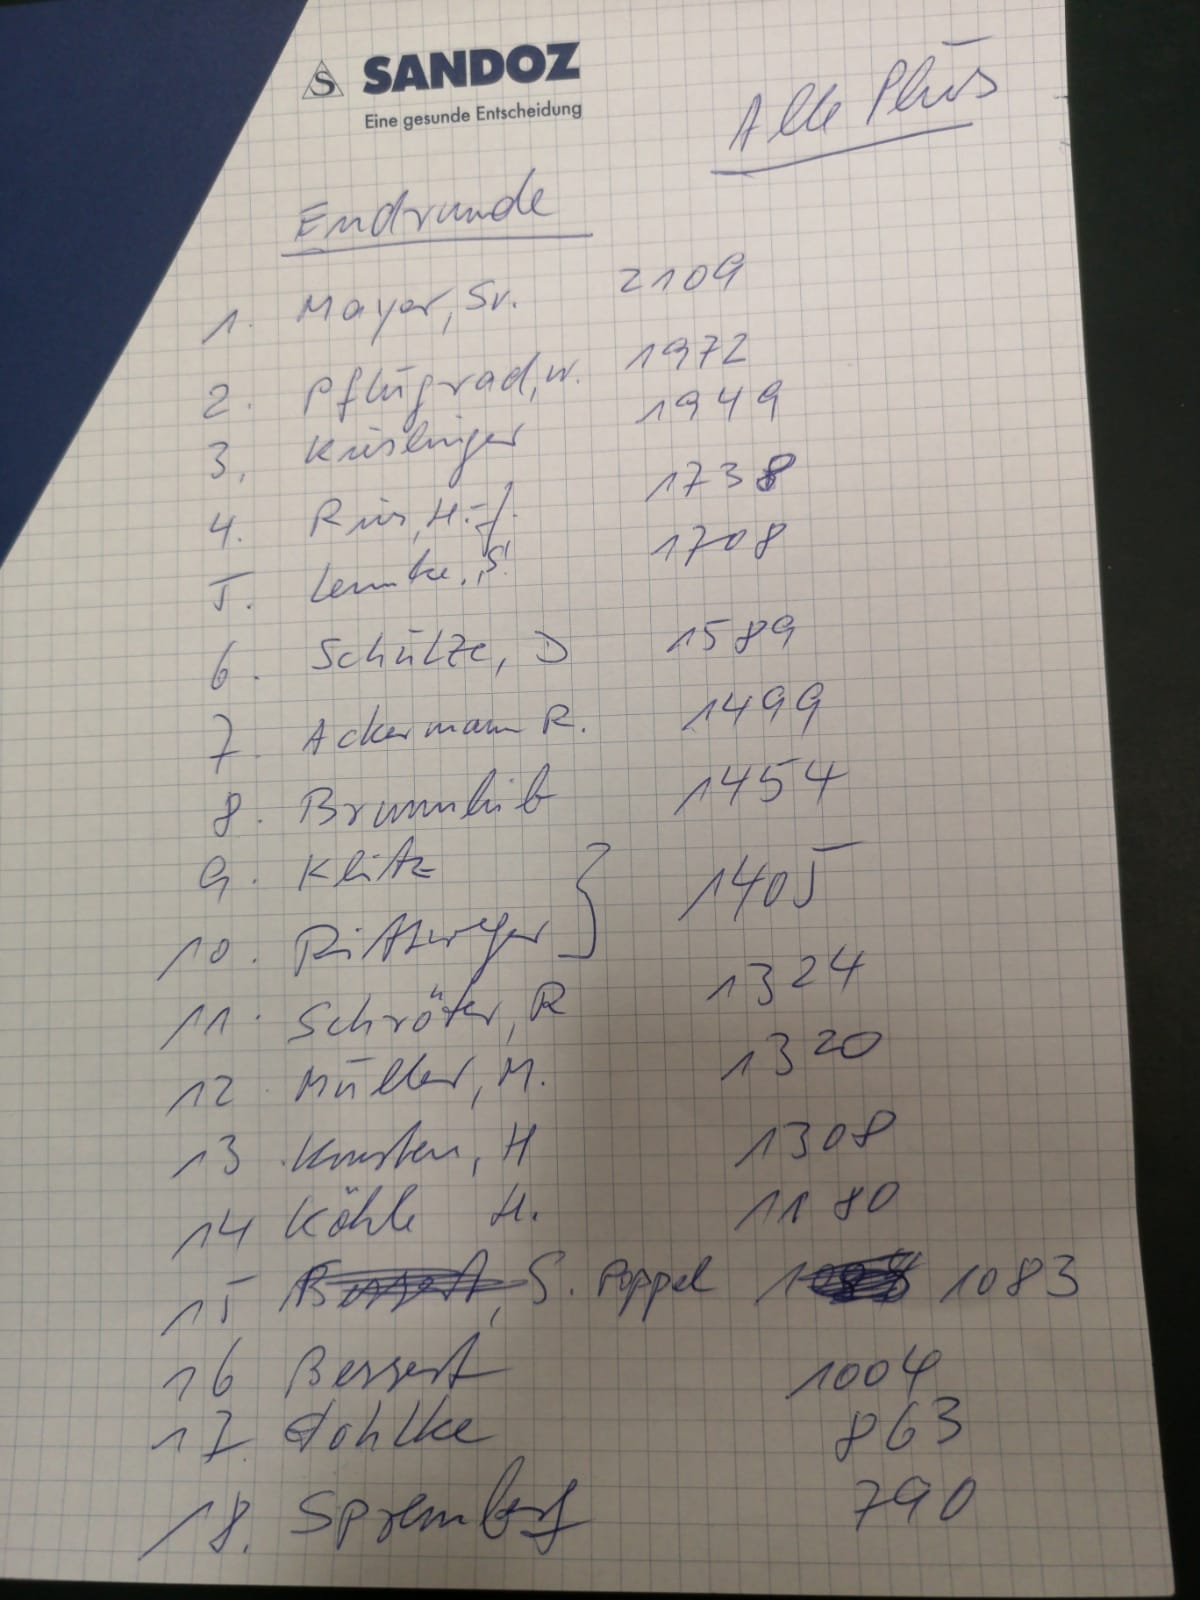 SANDOZ
Eine gesunde Entscheidung
Alle Plus
Endrunde
1. Mayer, Sr. 2109
2. Pflugrad, W. 1972
3. Kieslinger 1949
4. H.-J. 1738
5. Lemke, S. 1708
6. Schültze, D 1589
7. Ackermann R. 1499
8. 1454
9. Klütz
10. Rittweger } 1405
11. Schröter, R 1324
12 Müller, M. 1320
13 H 1308
14 Köhle H. 1180
15 S. Poppel 1083
16 Bessert 1004
17. Dohlke 863
18. Spremberg 790